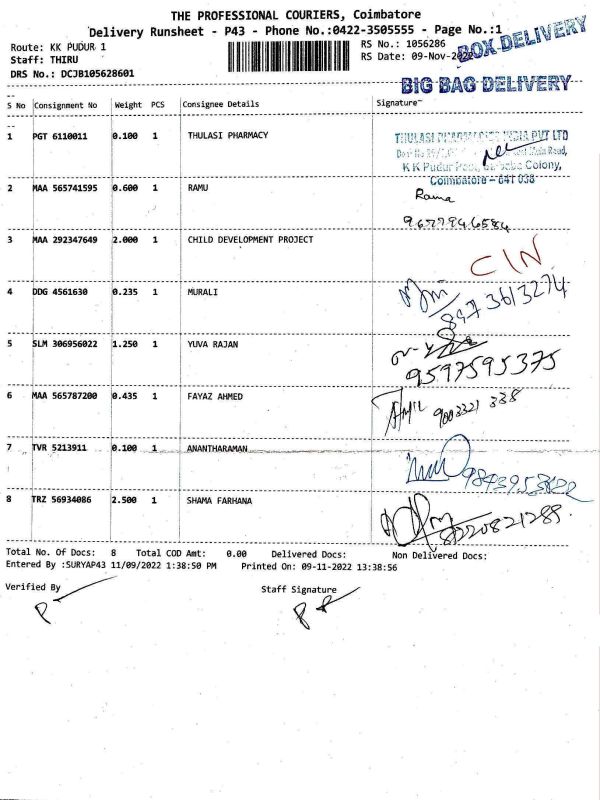 THE PROFESSIONAL COURIERS, Coimbatore
Delivery Runsheet - P43 - Phone No.:0422-3505555 - Page No.:1
Route: KK PUDUR 1
RS No.: 1056286
BOX DELIVERY
Staff: THIRU
RS Date: 09-Nov-2022
DRS No.: DCJB105628601
BIG BAG DELIVERY
S No Consignment No Weight PCS Consignee Details Signature
1 PGT 6110011 0.100 1 THULASI PHARMACY
THULASI PHARMACIES INDIA PVT LTD
Main Road,
K K Pudur Colony,
Coimbatore - 641 038
2 MAA 565741595 0.600 1 RAMU
Rama
3 MAA 292347649 2.000 1 CHILD DEVELOPMENT PROJECT
4 DDG 4561630 0.235 1 MURALI
897 3613274
5 SLM 306956022 1.250 1 YUVA RAJAN
9597595375
6 MAA 565787200 0.435 1 FAYAZ AHMED
9003321 338
7 TVR 5213911 0.100 1 ANANTHARAMAN
8 TRZ 56934086 2.500 1 SHAMA FARHANA
8220821289.
Total No. Of Docs: 8 Total COD Amt: 0.00 Delivered Docs: Non Delivered Docs:
Entered By :SURYAP43 11/09/2022 1:38:50 PM Printed On: 09-11-2022 13:38:56
Verified By
Staff Signature